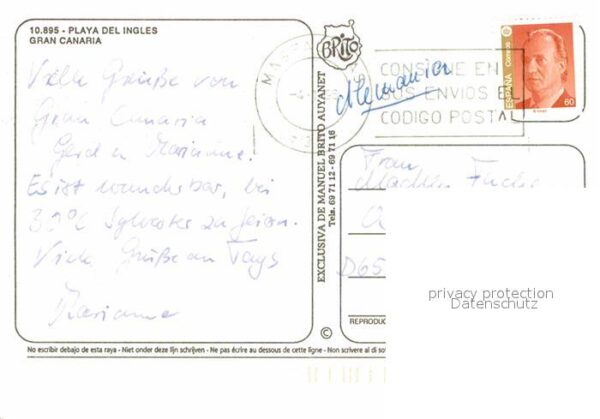 10.895 - PLAYA DEL INGLES
GRAN CANARIA
Viele Grüße von
Gran Canaria
Gerd u. Marianne.
Es ist wunderbar, bei
30°C Sylvester zu feiern.
Viele Grüße an
Marianne
BRITO
EXCLUSIVA DE MANUEL BRITO AUYANET
Telfs. 69 71 12 - 69 71 16
©
Alemania
CONSIGNE EN
SUS ENVIOS EL
CODIGO POSTAL
ESPAÑA Correos
60
Frau
D65
REPRODUC
privacy protection
Datenschutz
No escribir debajo de esta raya - Niet onder deze lijn schrijven - Ne pas écrire au dessous de cette ligne - Non scrivere al di so